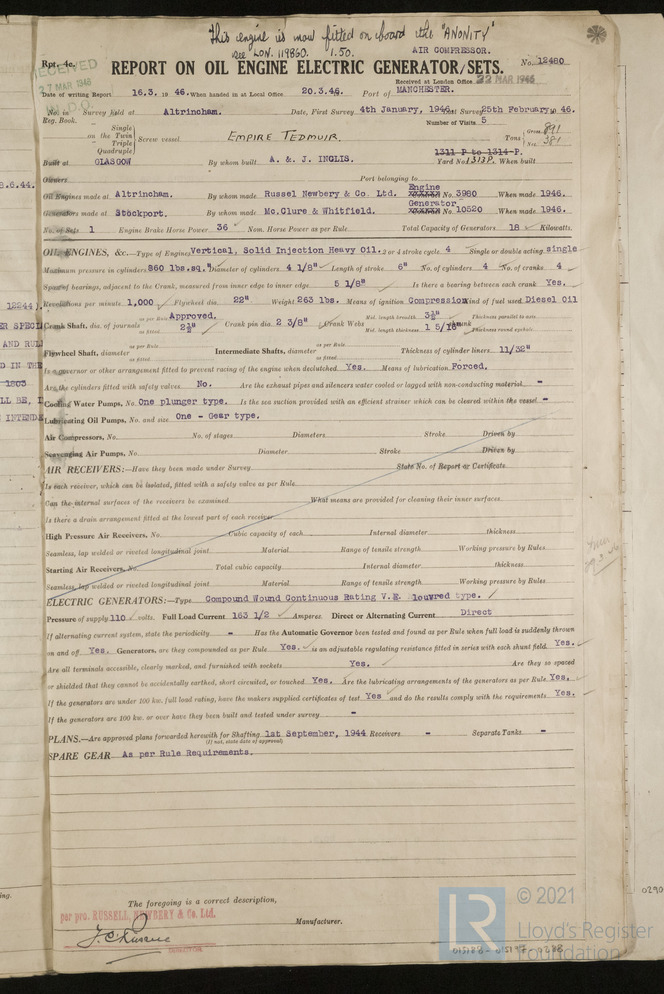 This engine is now fitted on board the "ANONITY"
see LON. 119860. 1.50.
AIR COMPRESSOR.
Rpt. 4c.
RECEIVED
27 MAR 1946
REPORT ON OIL ENGINE ELECTRIC GENERATOR/SETS.
No. 12480
Received at London Office 22 MAR 1946
Date of writing Report 16.3. 19 46. When handed in at Local Office 20.3.46. Port of MANCHESTER.
No. in Survey held at Altrincham. Date, First Survey 4th January, 1946. Last Survey 25th February, 19 46.
Reg. Book. Number of Visits 5
Single
on the Twin
Triple
Quadruple
Screw vessel EMPIRE TEDMUIR. Tons Gross 891
Net 381
1311 P to 1314 P.
Built at GLASGOW By whom built A. & J. INGLIS. Yard No. 1313P. When built
Owners Port belonging to
Oil Engines made at Altrincham. By whom made Russel Newbery & Co. Ltd. Engine No. 3980 When made 1946.
Generators made at Stockport. By whom made Mc.Clure & Whitfield. Generator No. 10520 When made 1946.
No. of Sets 1 Engine Brake Horse Power 36 Nom. Horse Power as per Rule Total Capacity of Generators 18 Kilowatts.
OIL ENGINES, &c.—Type of Engines Vertical, Solid Injection Heavy Oil. 2 or 4 stroke cycle 4 Single or double acting single
Maximum pressure in cylinders 860 lbs.sq." Diameter of cylinders 4 1/8" Length of stroke 6" No. of cylinders 4 No. of cranks 4
Span of bearings, adjacent to the Crank, measured from inner edge to inner edge 5 1/8" Is there a bearing between each crank Yes.
Revolutions per minute 1,000 Flywheel dia. 22" Weight 263 lbs. Means of ignition Compression Kind of fuel used Diesel Oil
Crank Shaft, dia. of journals as per Rule Approved. as fitted 2½" Crank pin dia. 2 3/8" Crank Webs Mid. length breadth 3½" Thickness parallel to axis
Mid. length thickness 1 5/16" shrunk Thickness round eyehole
Flywheel Shaft, diameter as per Rule as fitted Intermediate Shafts, diameter as per Rule as fitted Thickness of cylinder liners 11/32"
Is a governor or other arrangement fitted to prevent racing of the engine when declutched Yes. Means of lubrication Forced.
Are the cylinders fitted with safety valves No. Are the exhaust pipes and silencers water cooled or lagged with non-conducting material -
Cooling Water Pumps, No. One plunger type. Is the sea suction provided with an efficient strainer which can be cleared within the vessel -
Lubricating Oil Pumps, No. and size One - Gear type.
Air Compressors, No. No. of stages Diameters Stroke Driven by
Scavenging Air Pumps, No. Diameter Stroke Driven by
AIR RECEIVERS:—Have they been made under Survey State No. of Report or Certificate
Is each receiver, which can be isolated, fitted with a safety valve as per Rule
Can the internal surfaces of the receivers be examined What means are provided for cleaning their inner surfaces
Is there a drain arrangement fitted at the lowest part of each receiver
High Pressure Air Receivers, No. Cubic capacity of each Internal diameter thickness
Seamless, lap welded or riveted longitudinal joint Material Range of tensile strength Working pressure by Rules
Starting Air Receivers, No. Total cubic capacity Internal diameter thickness
Seamless, lap welded or riveted longitudinal joint Material Range of tensile strength Working pressure by Rules
ELECTRIC GENERATORS:—Type Compound Wound Continuous Rating V.E. louvred type.
Pressure of supply 110 volts. Full Load Current 163 1/2 Amperes. Direct or Alternating Current Direct
If alternating current system, state the periodicity - Has the Automatic Governor been tested and found as per Rule when full load is suddenly thrown
on and off Yes. Generators, are they compounded as per Rule Yes. is an adjustable regulating resistance fitted in series with each shunt field Yes.
Are all terminals accessible, clearly marked, and furnished with sockets Yes. Are they so spaced
or shielded that they cannot be accidentally earthed, short circuited, or touched Yes. Are the lubricating arrangements of the generators as per Rule Yes.
If the generators are under 100 kw. full load rating, have the makers supplied certificates of test Yes and do the results comply with the requirements Yes.
If the generators are 100 kw. or over have they been built and tested under survey -
PLANS.—Are approved plans forwarded herewith for Shafting 1st September, 1944 Receivers - Separate Tanks -
(If not, state date of approval)
SPARE GEAR As per Rule Requirements.
The foregoing is a correct description,
per pro. RUSSELL NEWBERY & Co. Ltd.
Manufacturer.
LR
© 2021
Lloyd's Register
Foundation
015188-015197-0288